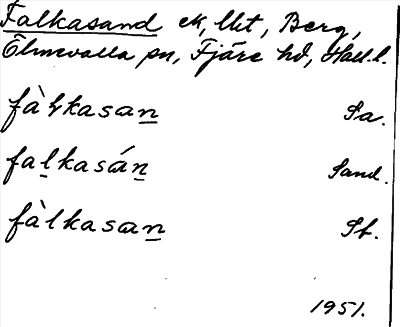 Falkasand ek, lht, Berg,
Ölmevalla sn, Fjäre hd, Hall. l.
fàlkasan Sa.
falkasán Sand.
fàlkasan Sf.
1951.